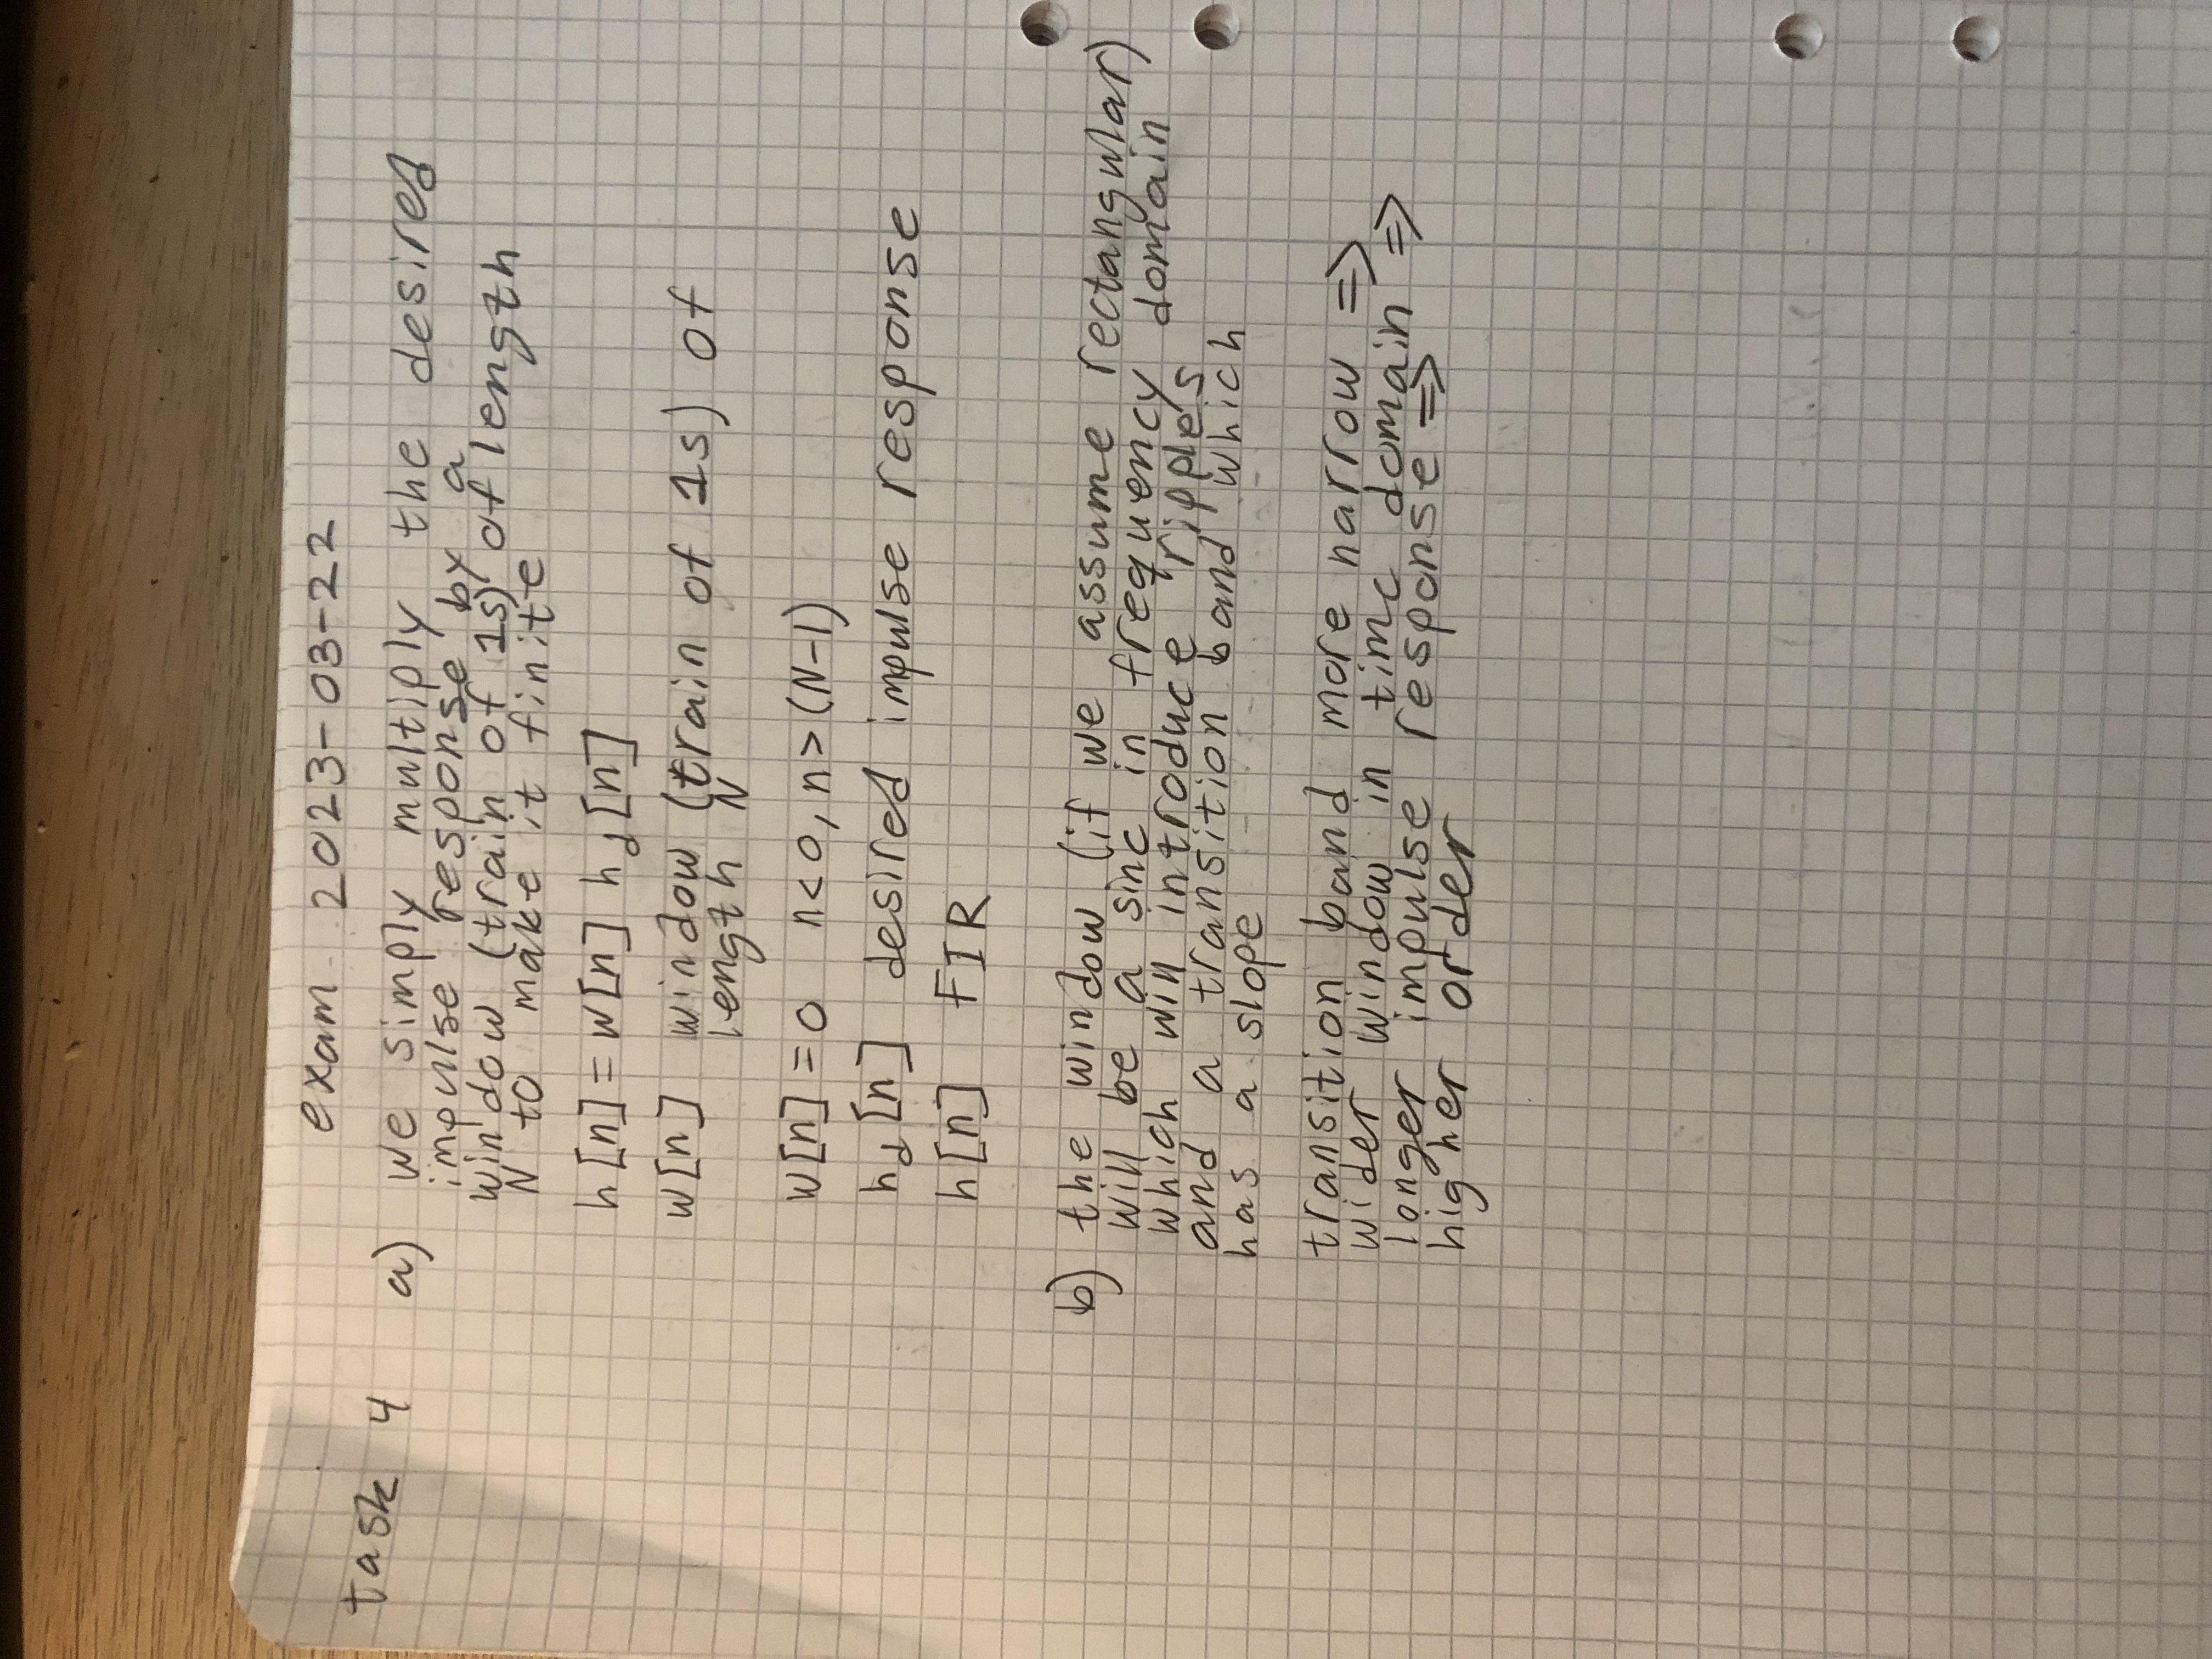 exam 2023-03-22
task 4 a) we simply multiply the desired
impulse response by a
window (train of 1s) of length
N to make it finite
h[n] = w[n] h_d[n]
w[n] window (train of 1s) of
length N
w[n] = 0 n<0, n>(N-1)
h_d[n] desired impulse response
h[n] FIR
b) the window (if we assume rectangular)
will be a sinc in frequency domain
which will introduce ripples
and a transition band which
has a slope
transition band more narrow =>
wider window in time domain =>
longer impulse response =>
higher order